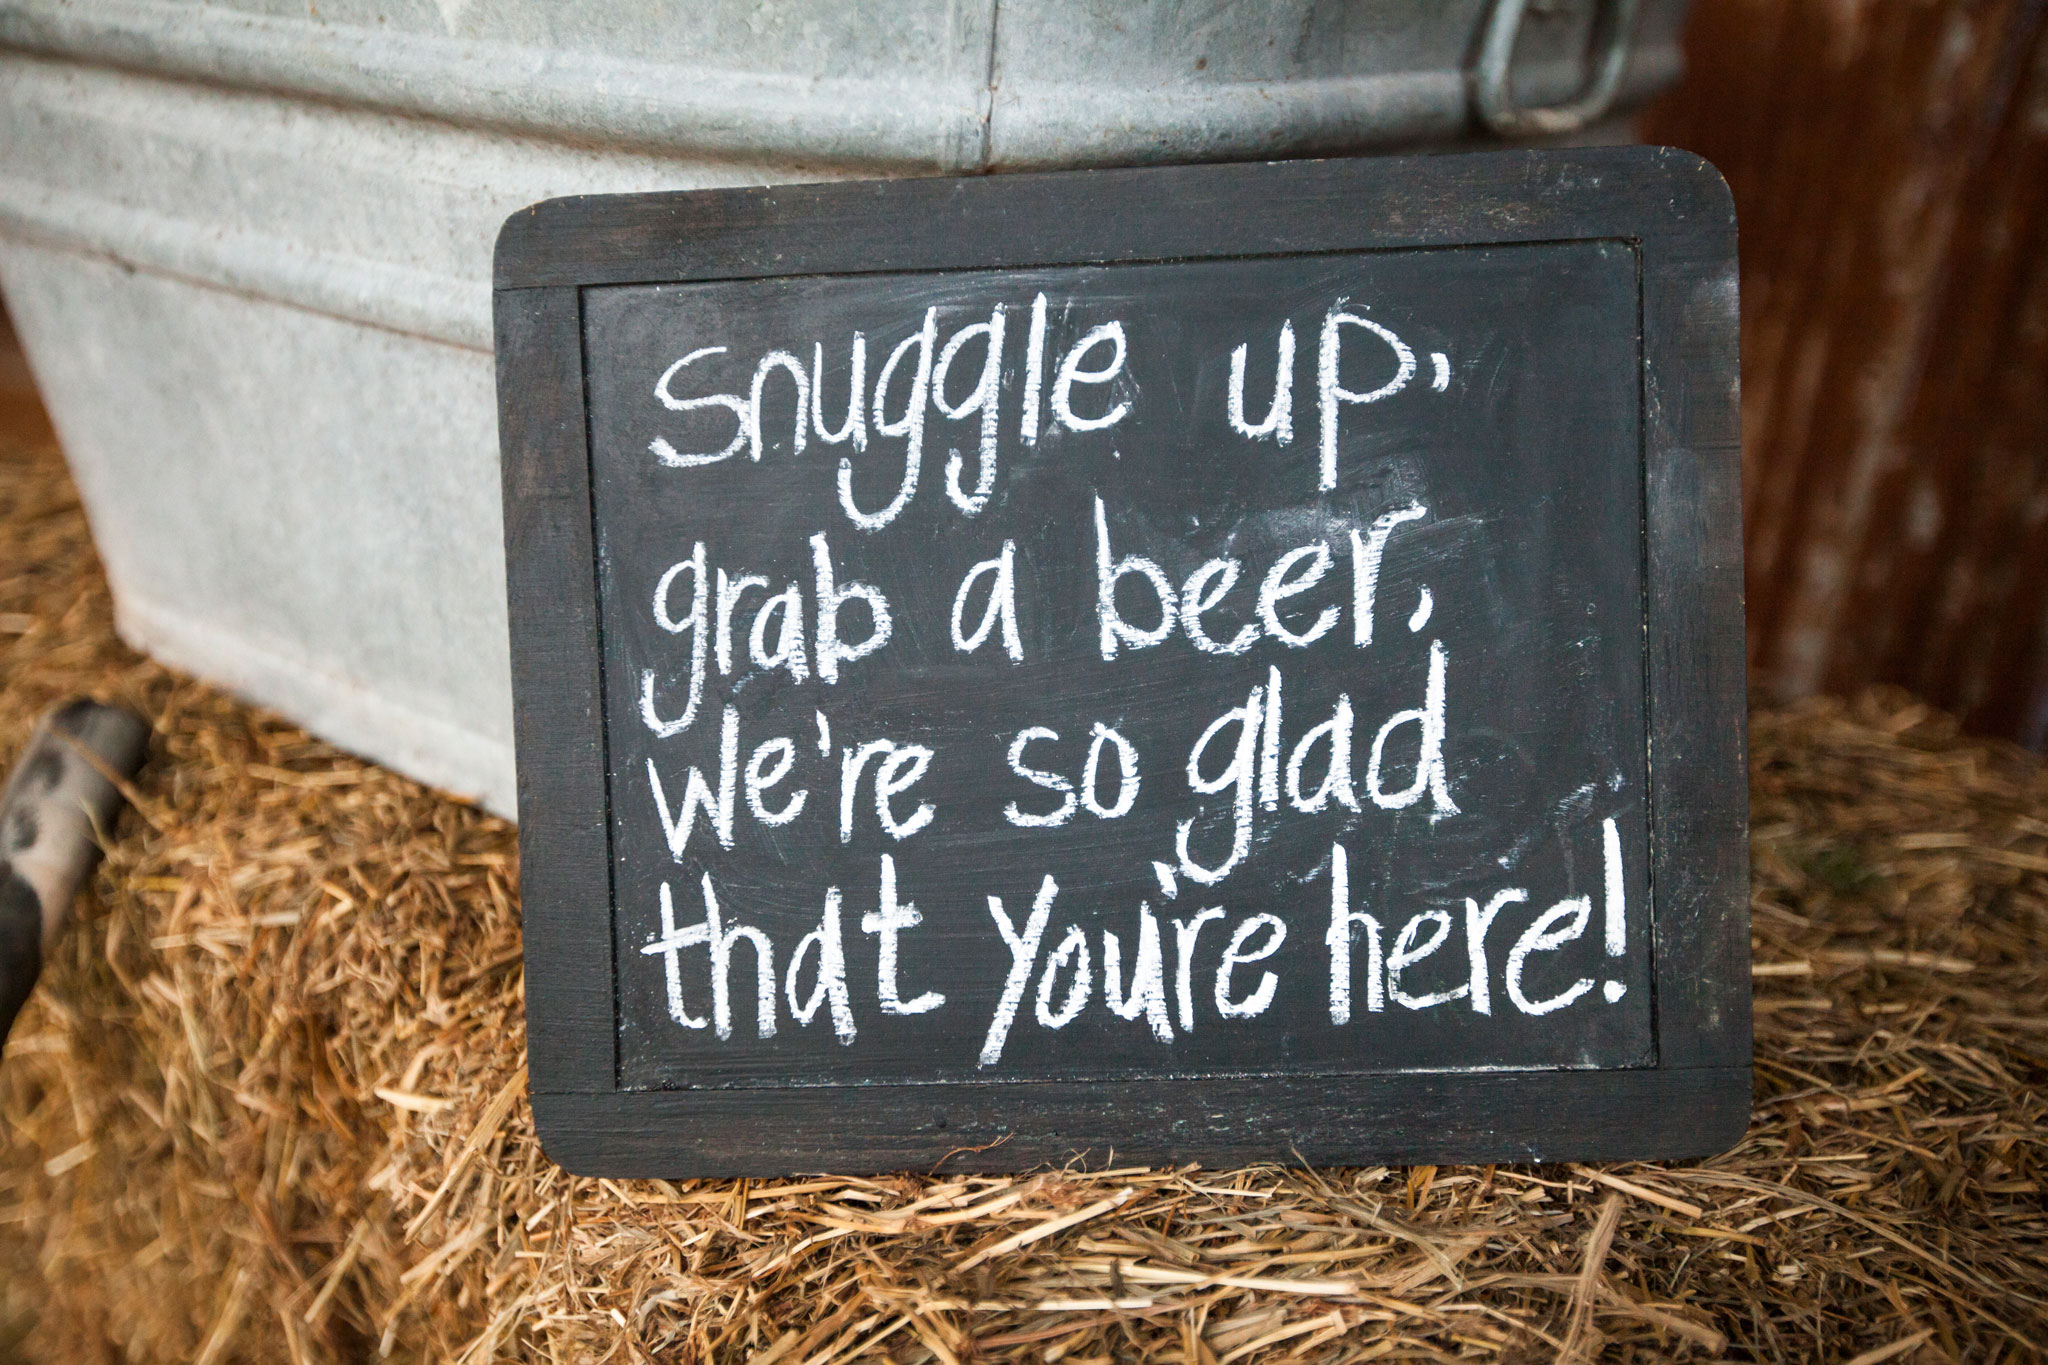 Snuggle up,
grab a beer,
We're so glad
that you're here!